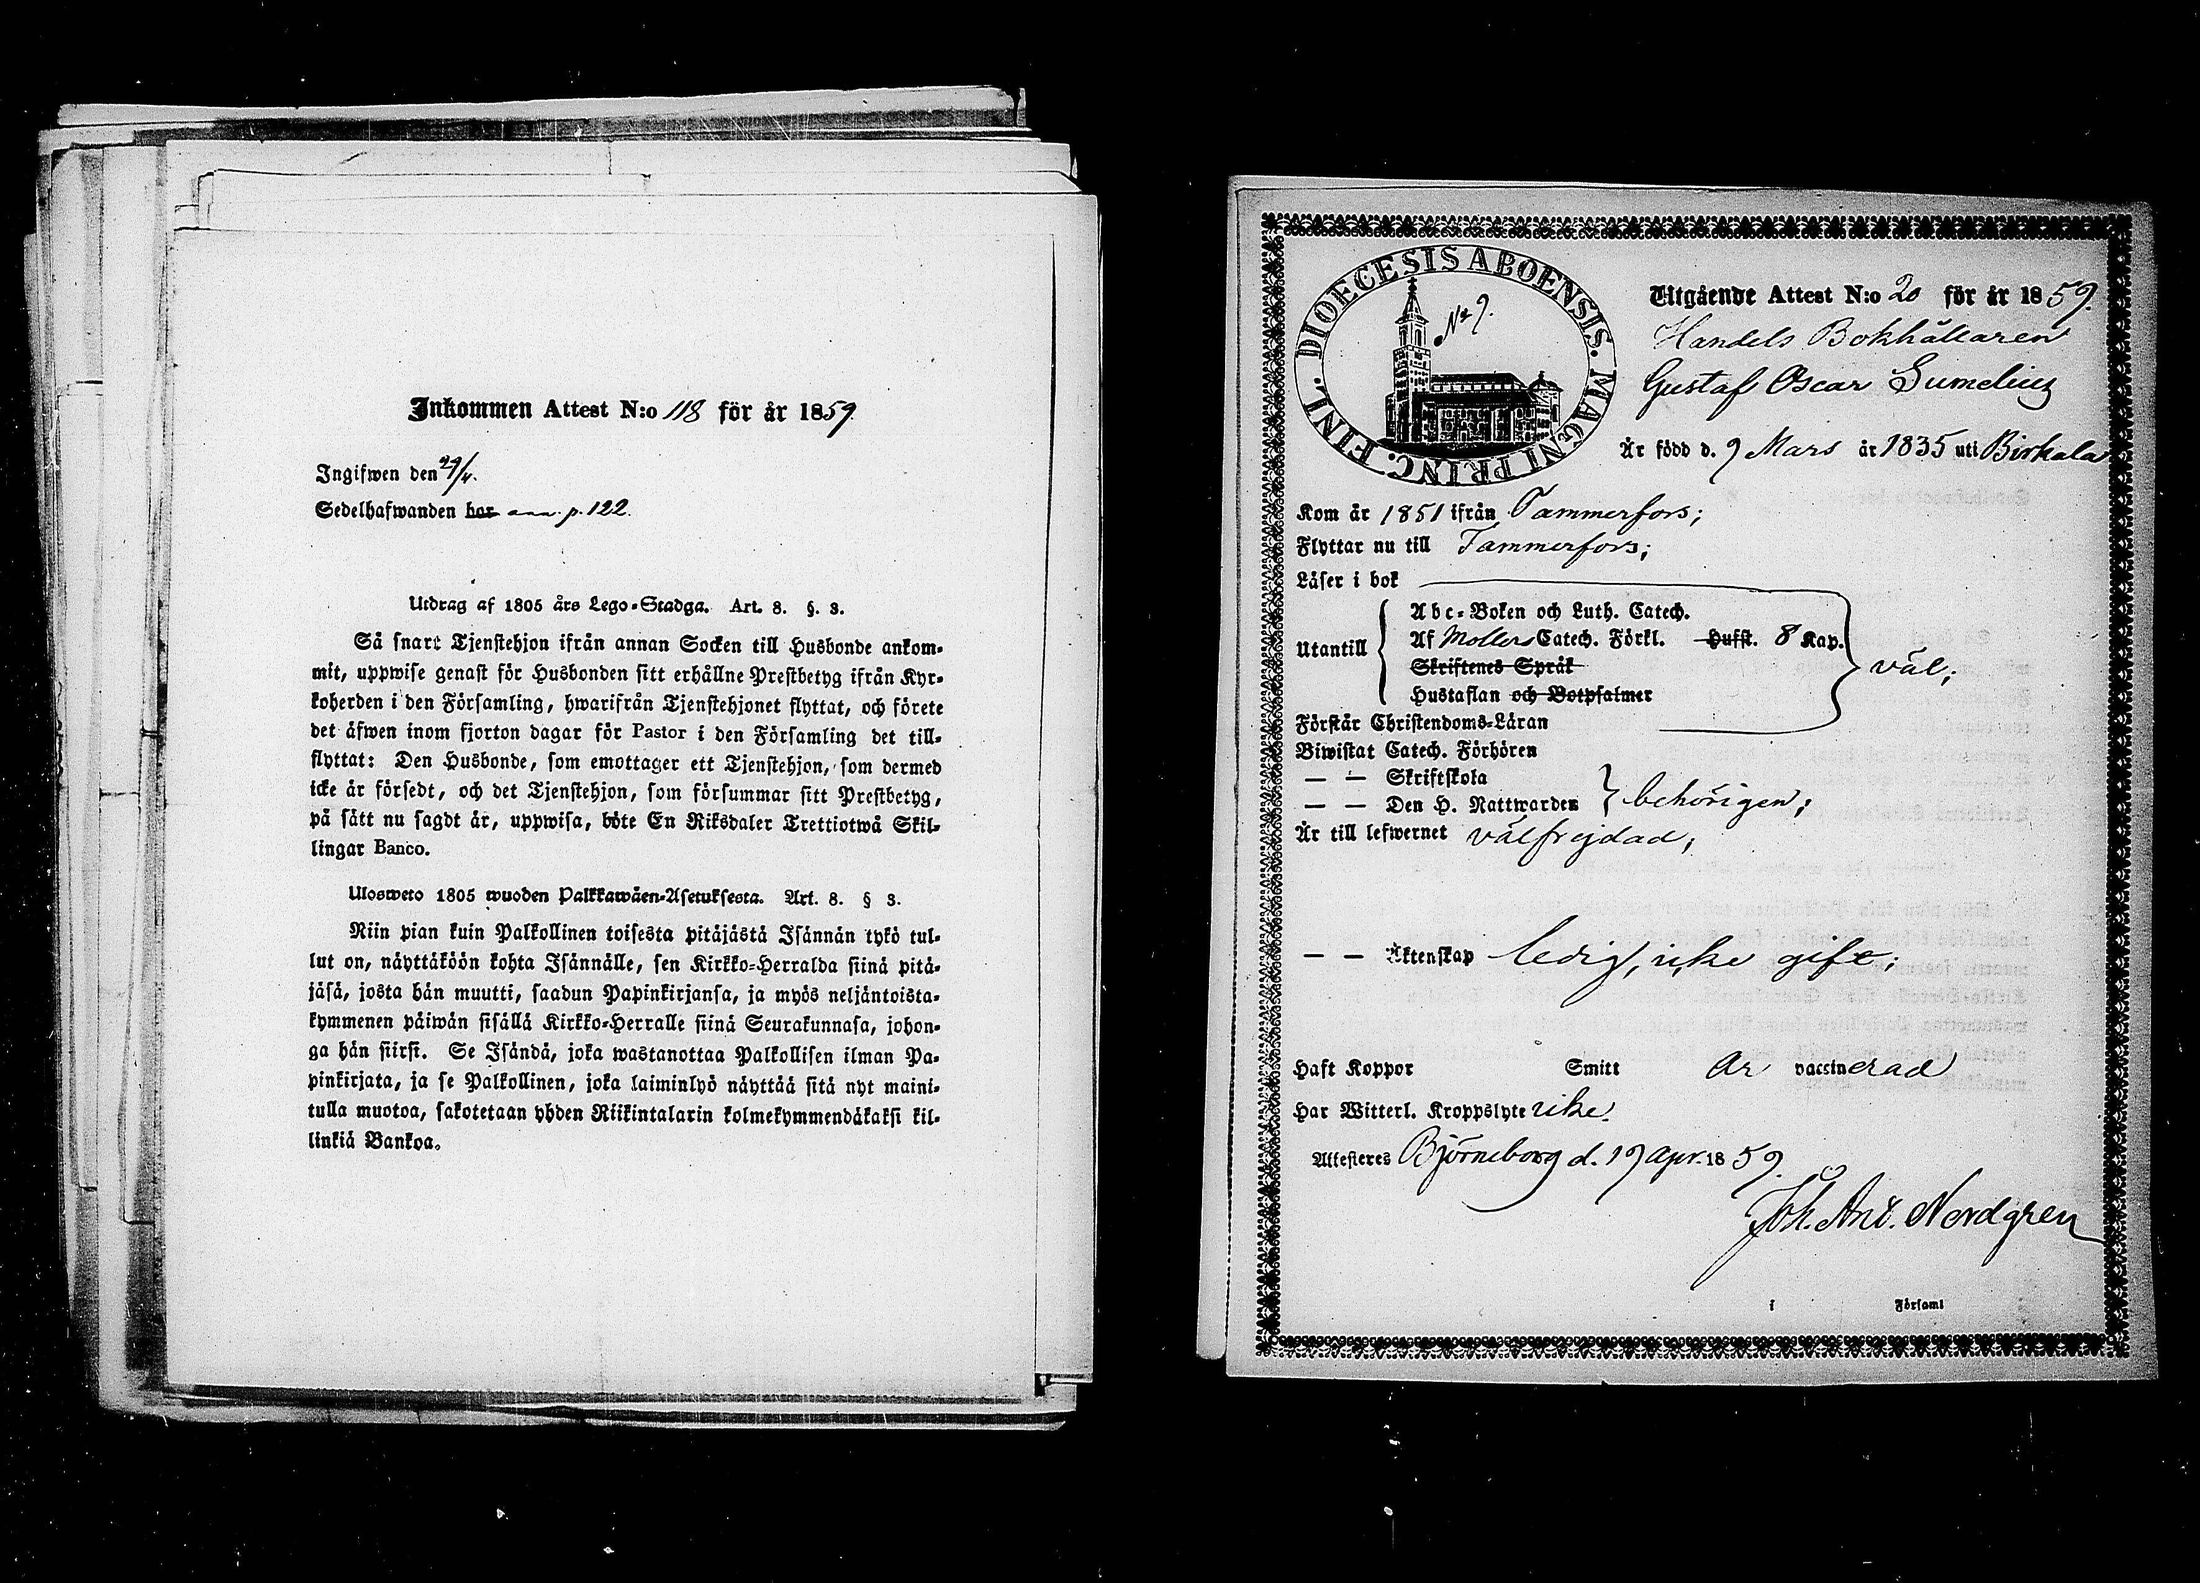 Inkommen Attest N:o 118 för år 1859.
Ingifwen den 29/4.
Sedelhafwanden har ann. p. 122.
Utdrag af 1805 års Lego-Stadga. Art. 8. §. 3.
Så snart Tjenstehjon ifrån annan Socken till Husbonde ankom-
mit, uppwise genast för Husbonden sitt erhållne Prestbetyg ifrån Kyr-
koherden i den Församling, hwarifrån Tjenstehjonet flyttat, och förete
det äfwen inom fjorton dagar för Pastor i den Församling det till-
flyttat: Den Husbonde, som emottager ett Tjenstehjon, som dermed
icke är försedt, och det Tjenstehjon, som försummar sitt Prestbetyg,
på sätt nu sagdt är, uppwisa, böte En Riksdaler Trettiotwå Skil-
lingar Banco.
Ulosweto 1805 wuoden Palkkawäen-Asetuksesta. Art. 8. § 3.
Niin pian kuin Palkollinen toisesta pitäjästä Isännän tykö tul-
lut on, näyttäköön kohta Isännälle, sen Kirkko-Herralda siinä pitä-
jäsä, josta hän muutti, saadun Papinkirjansa, ja myös neljäntoista-
kymmenen päiwän sisällä Kirkko-Herralle siinä Seurakunnasa, johon-
ga hän siirsi. Se Isändä, joka wastanottaa Palkollisen ilman Pa-
pinkirjata, ja se Palkollinen, joka laiminlyö näyttää sitä nyt maini-
tulla muotoa, sakotetaan yhden Riikintalarin kolmekymmendäkaksi kil-
linkiä Bankoa.
DIOECESIS ABOENSIS. MAGNI PRINC. FINL.
No 9.
Utgående Attest N:o 20 för år 1859.
Handels Bokhållaren
Gustaf Oscar Sumelius
Är född d. 9 Mars år 1835 uti Birkala
Kom år 1851 ifrån Tammerfors;
Flyttar nu till Tammerfors;
Läser i bok
Utantill
Abc-Boken och Luth. Catech.
Af Mollers Catech. Förkl. Hufst. 8 Kap.
Skriftenes Språk
Hustaflan och Botpsalmer
väl;
Förstår Christendoms-Läran
Biwistat Catech. Förhören
— — Skriftskola
— — Den H. Nattwarden
behörigen;
Är till lefwernet välfrejdad;
— — Äktenskap ledig, icke gift;
Haft Koppor Smitt är vaccinerad
Har Witterl. Kroppslyte icke.
Attesteres Björneborg d. 19 Apr. 1859.
Joh. Ant. Nordgren
i Församl